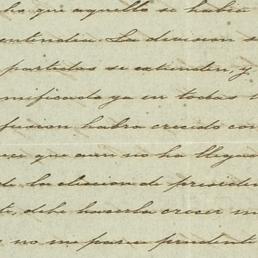 ho que aquello se habia
entendia. La division s
partidos se extienden y
nificado ya en todas l
fusion habra crecido con
ece que aun no ha llegad
de la eleccion de presiden
ti, debe hacerla crecer m
y no me parece prudente